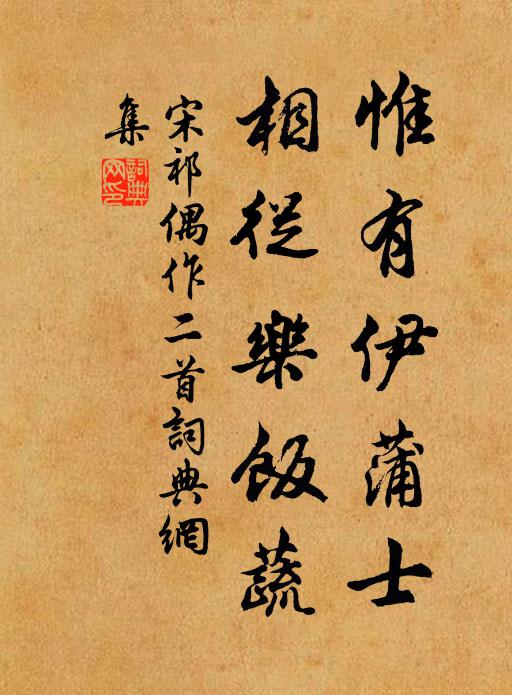 惟有伊蒲士
相從樂飯蔬
宋祁偶作二首詞典網
集
詞典網印